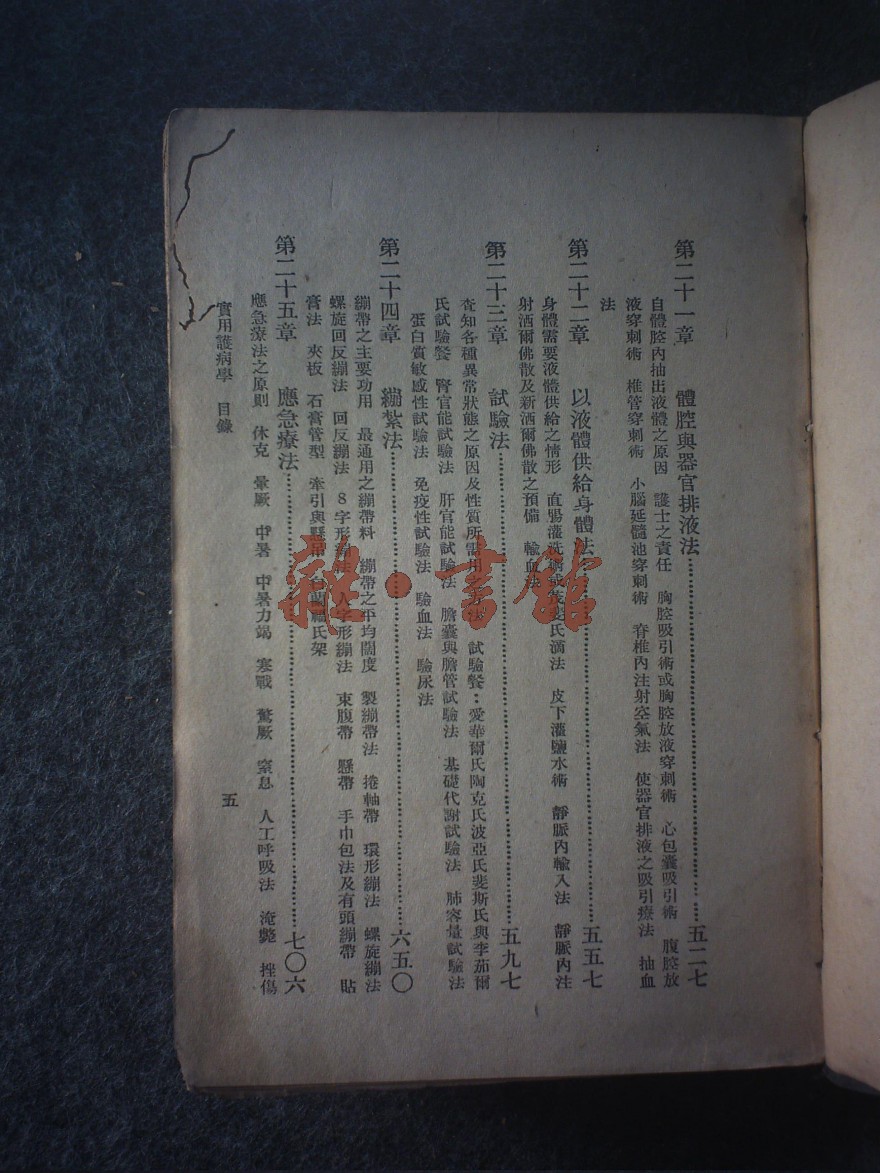 第二十一章　體腔與器官排液法……五二七
自體腔內抽出液體之原因　護士之責任　胸腔吸引術或胸腔放液穿刺術　心包囊吸引術　腹腔放
液穿刺術　椎管穿刺術　小腦延髓池穿刺術　脊椎內注射空氣法　使器官排液之吸引療法　抽血
法
第二十二章　以液體供給身體法……五五七
身體需要液體供給之情形　直腸灌洗　茂斐氏滴法　皮下灌鹽水術　靜脈內輸入法　靜脈內注
射洒爾佛散及新洒爾佛散之預備　輸血法
第二十三章　試驗法……五九七
查知各種異常狀態之原因及性質所需用之　法　試驗餐：愛華爾氏陶克氏波亞氏斐斯氏與李茄爾
氏試驗餐　腎官能試驗法　肝官能試驗法　膽囊與膽管試驗法　基礎代謝試驗法　肺容量試驗法
蛋白質敏感性試驗法　免疫性試驗法　驗血法　驗尿法
第二十四章　繃紮法……六五〇
繃帶之主要功用　最通用之繃帶料　繃帶之平均闊度　製繃帶法　捲軸帶　環形繃法　螺旋繃法
螺旋回反繃法　回反繃法　8字形繃法　人字形繃法　束腹帶　懸帶　手巾包法及有頭繃帶　貼
膏法　夾板　石膏管型　牽引與懸吊　白蘭福氏架
第二十五章　應急療法……七〇六
應急療法之原則　休克　暈厥　中暑　中暑力竭　寒戰　驚厥　窒息　人工呼吸法　淹斃　挫傷
實用護病學　目錄
五
雜·書館